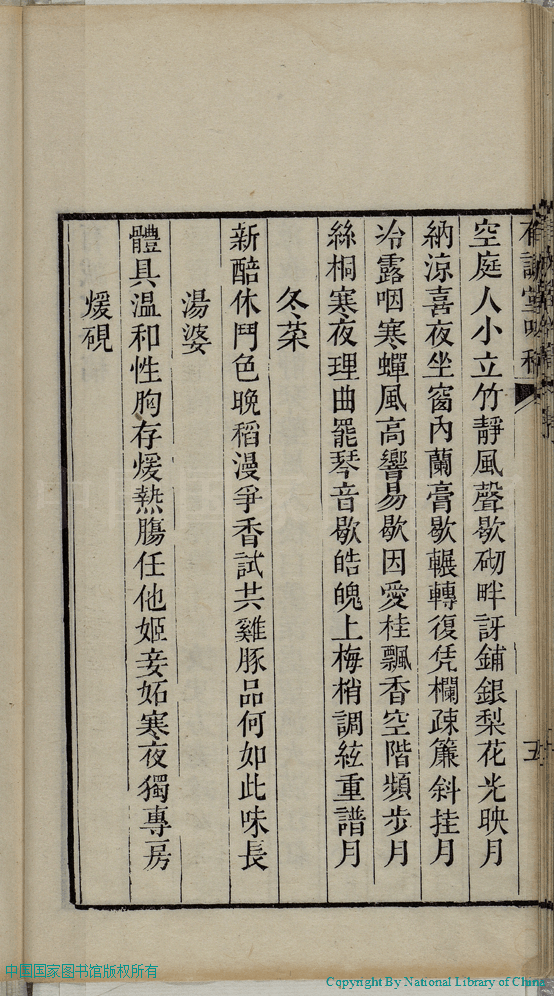 空庭人小立竹靜風聲歇砌畔訝鋪銀梨花光映月
納涼喜夜坐窗內蘭膏歇輾轉復凭欄疎簾斜挂月
冷露咽寒蟬風高響易歇因愛桂飄香空階頻步月
絲桐寒夜理曲罷琴音歇皓魄上梅梢調絃重譜月
冬菜
新醅休鬥色晚稻漫爭香試共雞豚品何如此味長
湯婆
體具溫和性胸存煖熱腸任他姬妾妬寒夜獨專房
煖硯
中国国家图书馆版权所有
Copyright By National Library of China